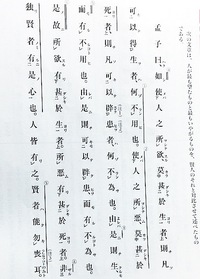 次の文章は、人が最も望むものと最もいやがるものを、賢人のそれと対比させて述べたもの
である。
孟子曰、如使人之所欲莫甚於生、則凡
可以得生者、何不用也。使人之所悪莫甚於
死者、則凡可以辟患者、何不為也。由是則生
而有不用也、由是則可以辟患、而有不為也。
是故所欲有甚於生者、所悪有甚於死者。非
独賢者有是心也。人皆有之。賢者能勿喪耳。